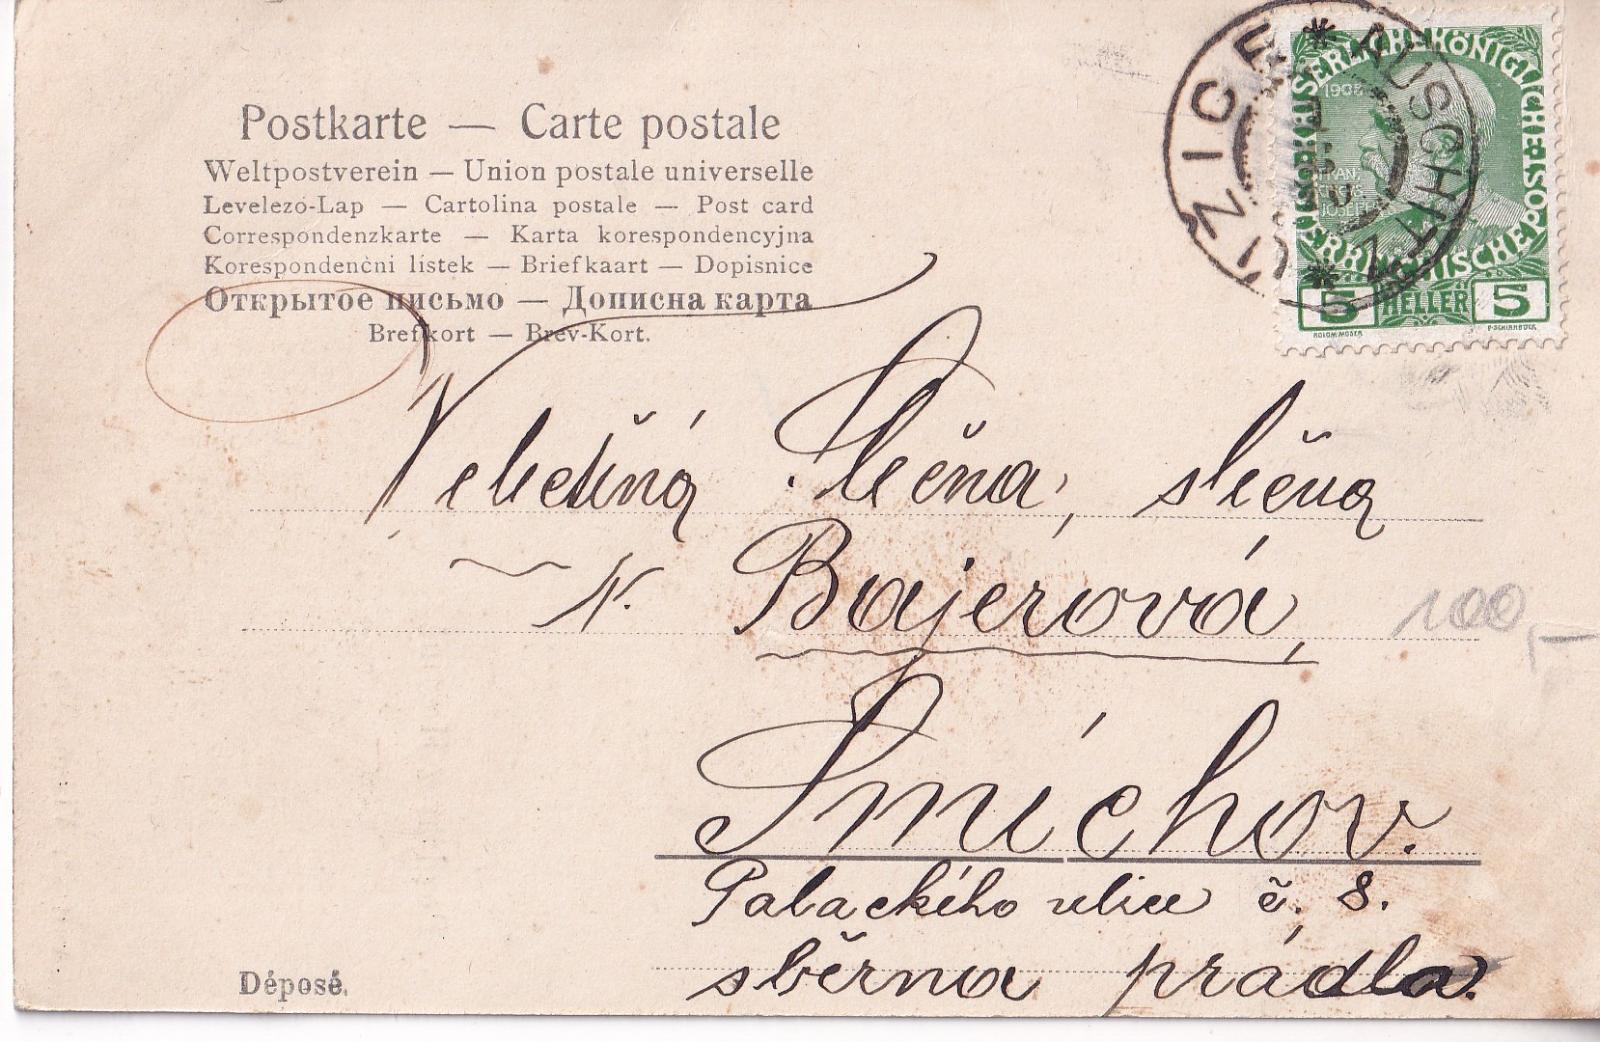 Postkarte — Carte postale
Weltpostverein — Union postale universelle
Levelező-Lap — Cartolina postale — Post card
Correspondenzkarte — Karta korespondencyjna
Korespondenční lístek — Briefkaart — Dopisnice
Открытое письмо — Дописна карта
Brefkort — Brev-Kort.
1908
FRANZ JOSEPH I
5 HELLER 5
KOLOM. MOSER
F. SCHIRNBÖCK
Slečna, slečna
Bajerová,
Smíchov.
Palackého ulice č. 8.
sběrna prádla.
100,-
Déposé.